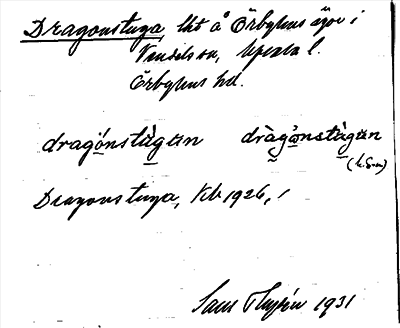 Dragonstuga, lht å Örbyhus ägor i
Vendels sn, Uppsala l.
Örbyhus hd.
dragónstùgan dràgònstùgan
(k.Svm)
Dragonstuga, Kb 1926, 1
1931